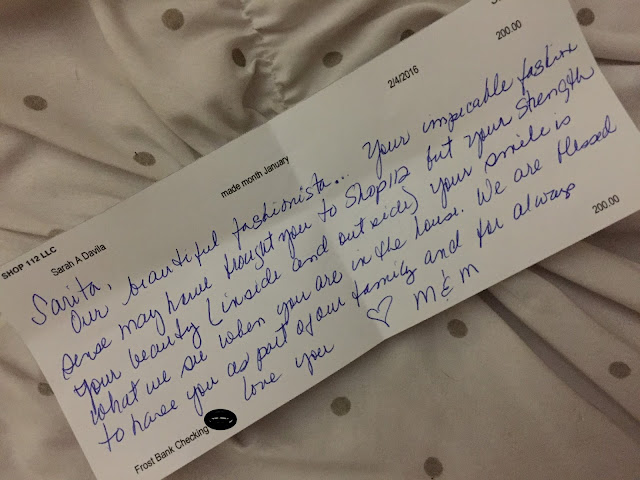 SHOP 112 LLC
Sarah A Davila
2/4/2016
made month January
200.00
Sarita,
Our beautiful fashionista... Your impecable fashion
sense may have brought you to Shop112 but your strength
your beauty (inside and outside) your smile is
what we see when you are in the house. We are blessed
to have you as part of our family and for always
love you ♡ M & M
Frost Bank Checking
200.00